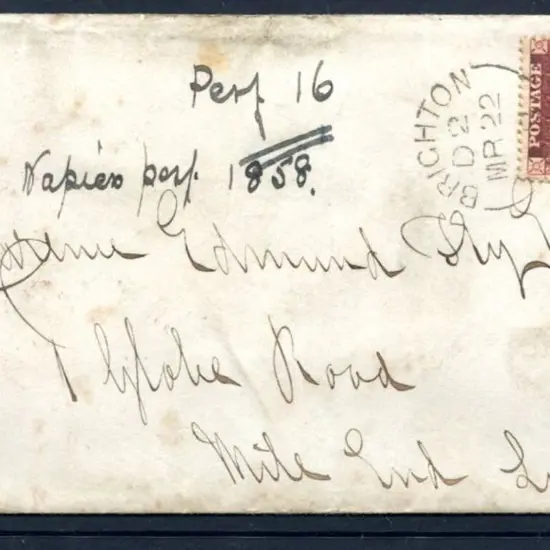 Perf 16
Napier perf. 1858.
BRIGHTON
BD 2
MR 22
POSTAGE
Edmund
Globe Road
Mile End